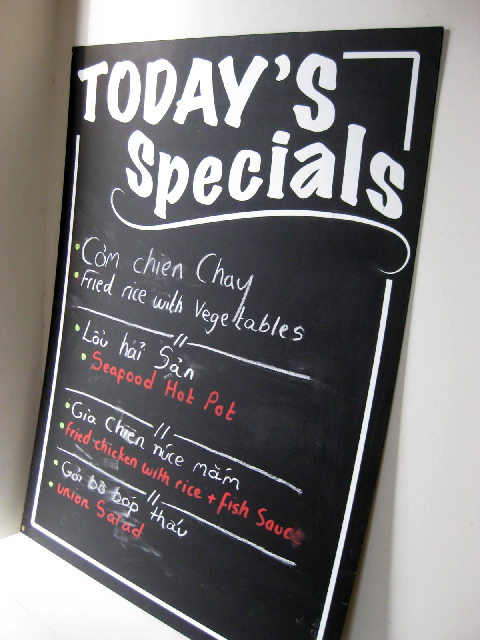 TODAY'S
Specials
Cơm chiên Chay
Fried rice with Vegetables
Lẩu hải Sản
Seafood Hot Pot
Gia Chiên nước mắm
fried chicken with rice + fish Sauce
Gỏi bò bóp thấu
union Salad